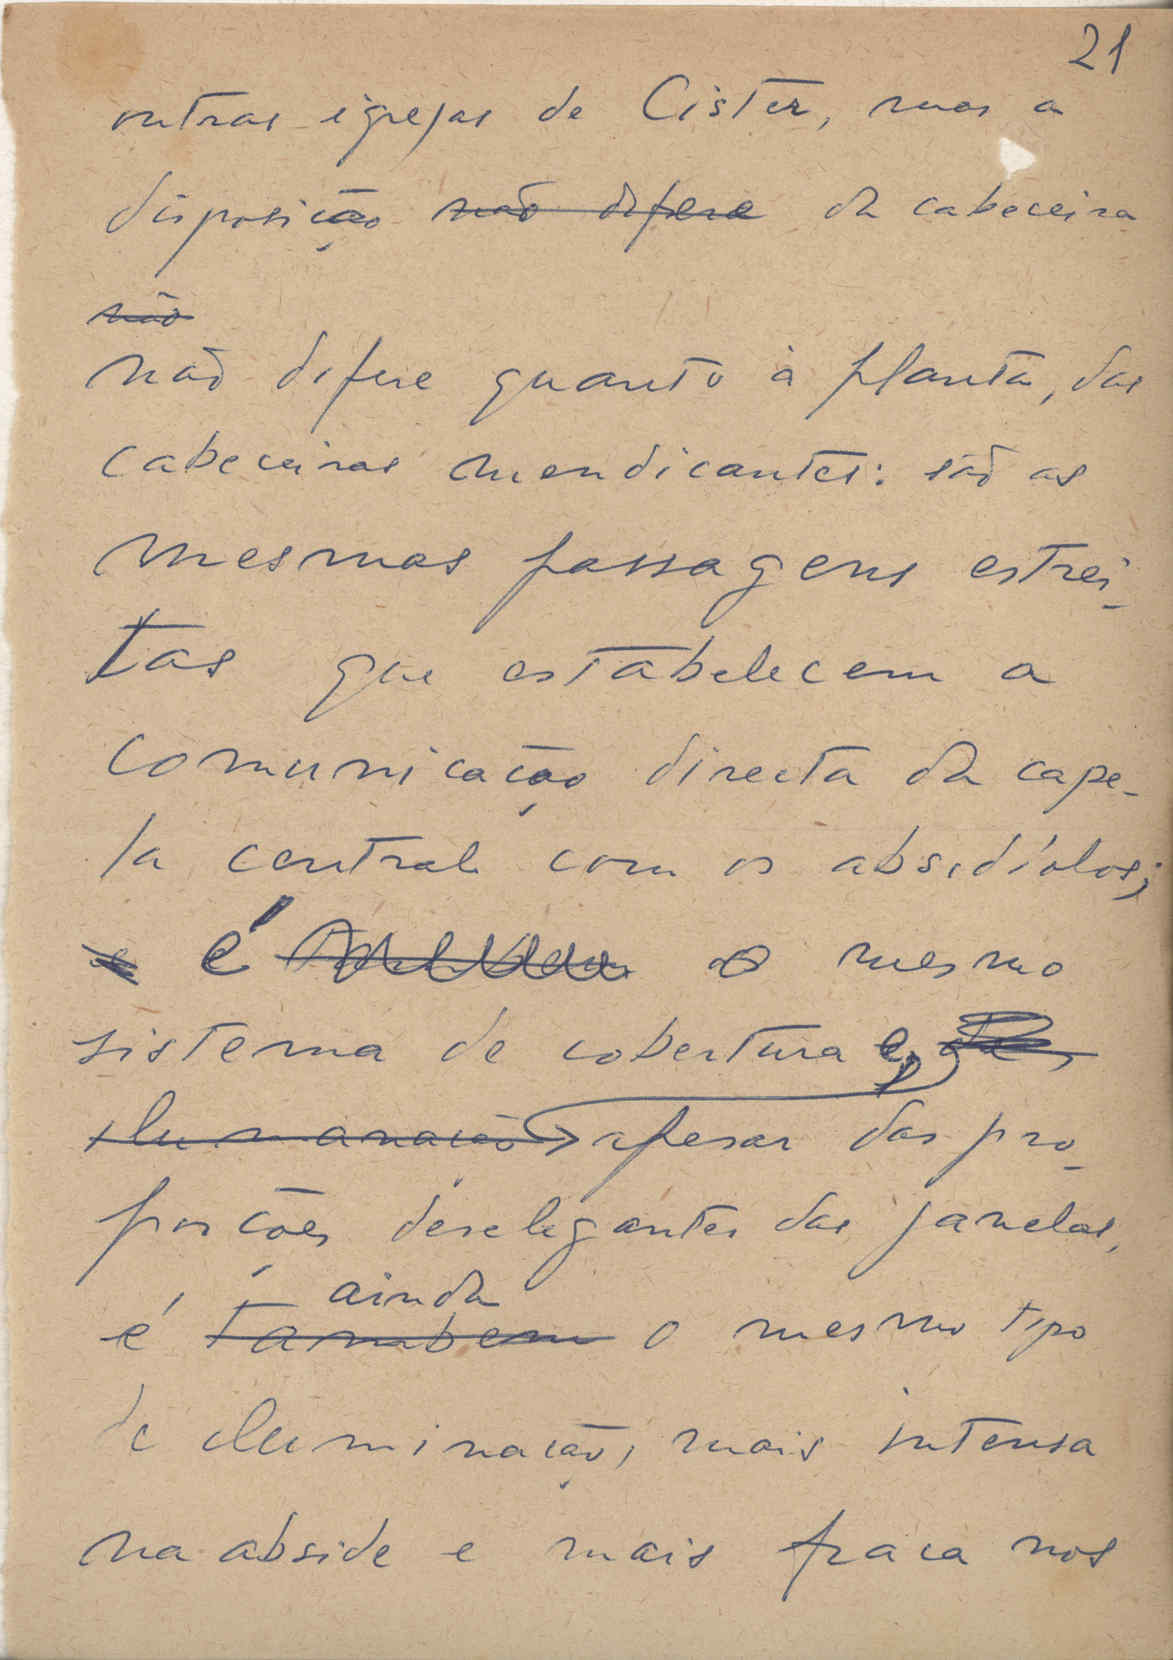 21
outras igrejas de Cister, mas a
disposição não difere da cabeceira
não
não difere quanto à planta, das
cabeceiras mendicantes: são as
mesmas passagens estrei-
tas que estabelecem a
comunicação directa da cape-
la central com os absidíolos;
e é o mesmo
sistema de cobertura e, de
iluminação apesar das pro-
porções deselegantes das janelas,
ainda
é também o mesmo tipo
de iluminação, mais intensa
na abside e mais fraca nos